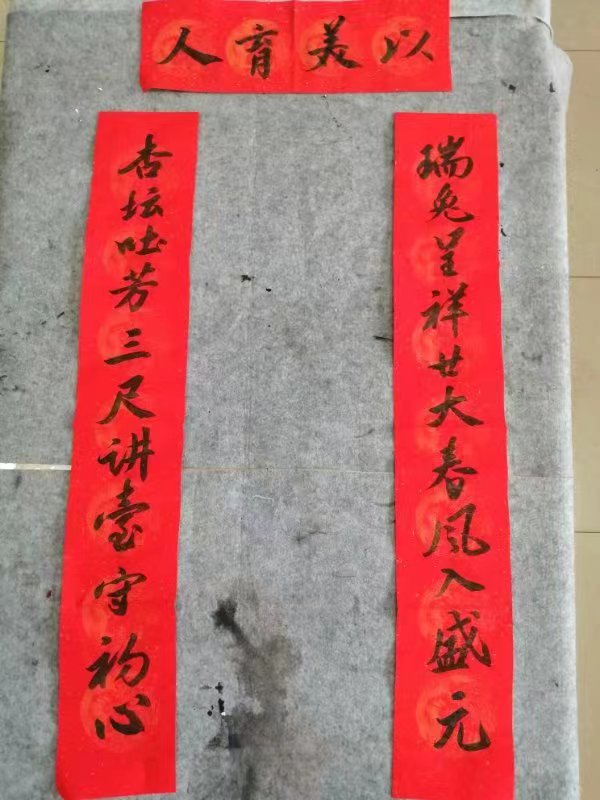 以美育人
瑞兔呈祥廿大春风入盛元
杏坛吐芳三尺讲臺守初心